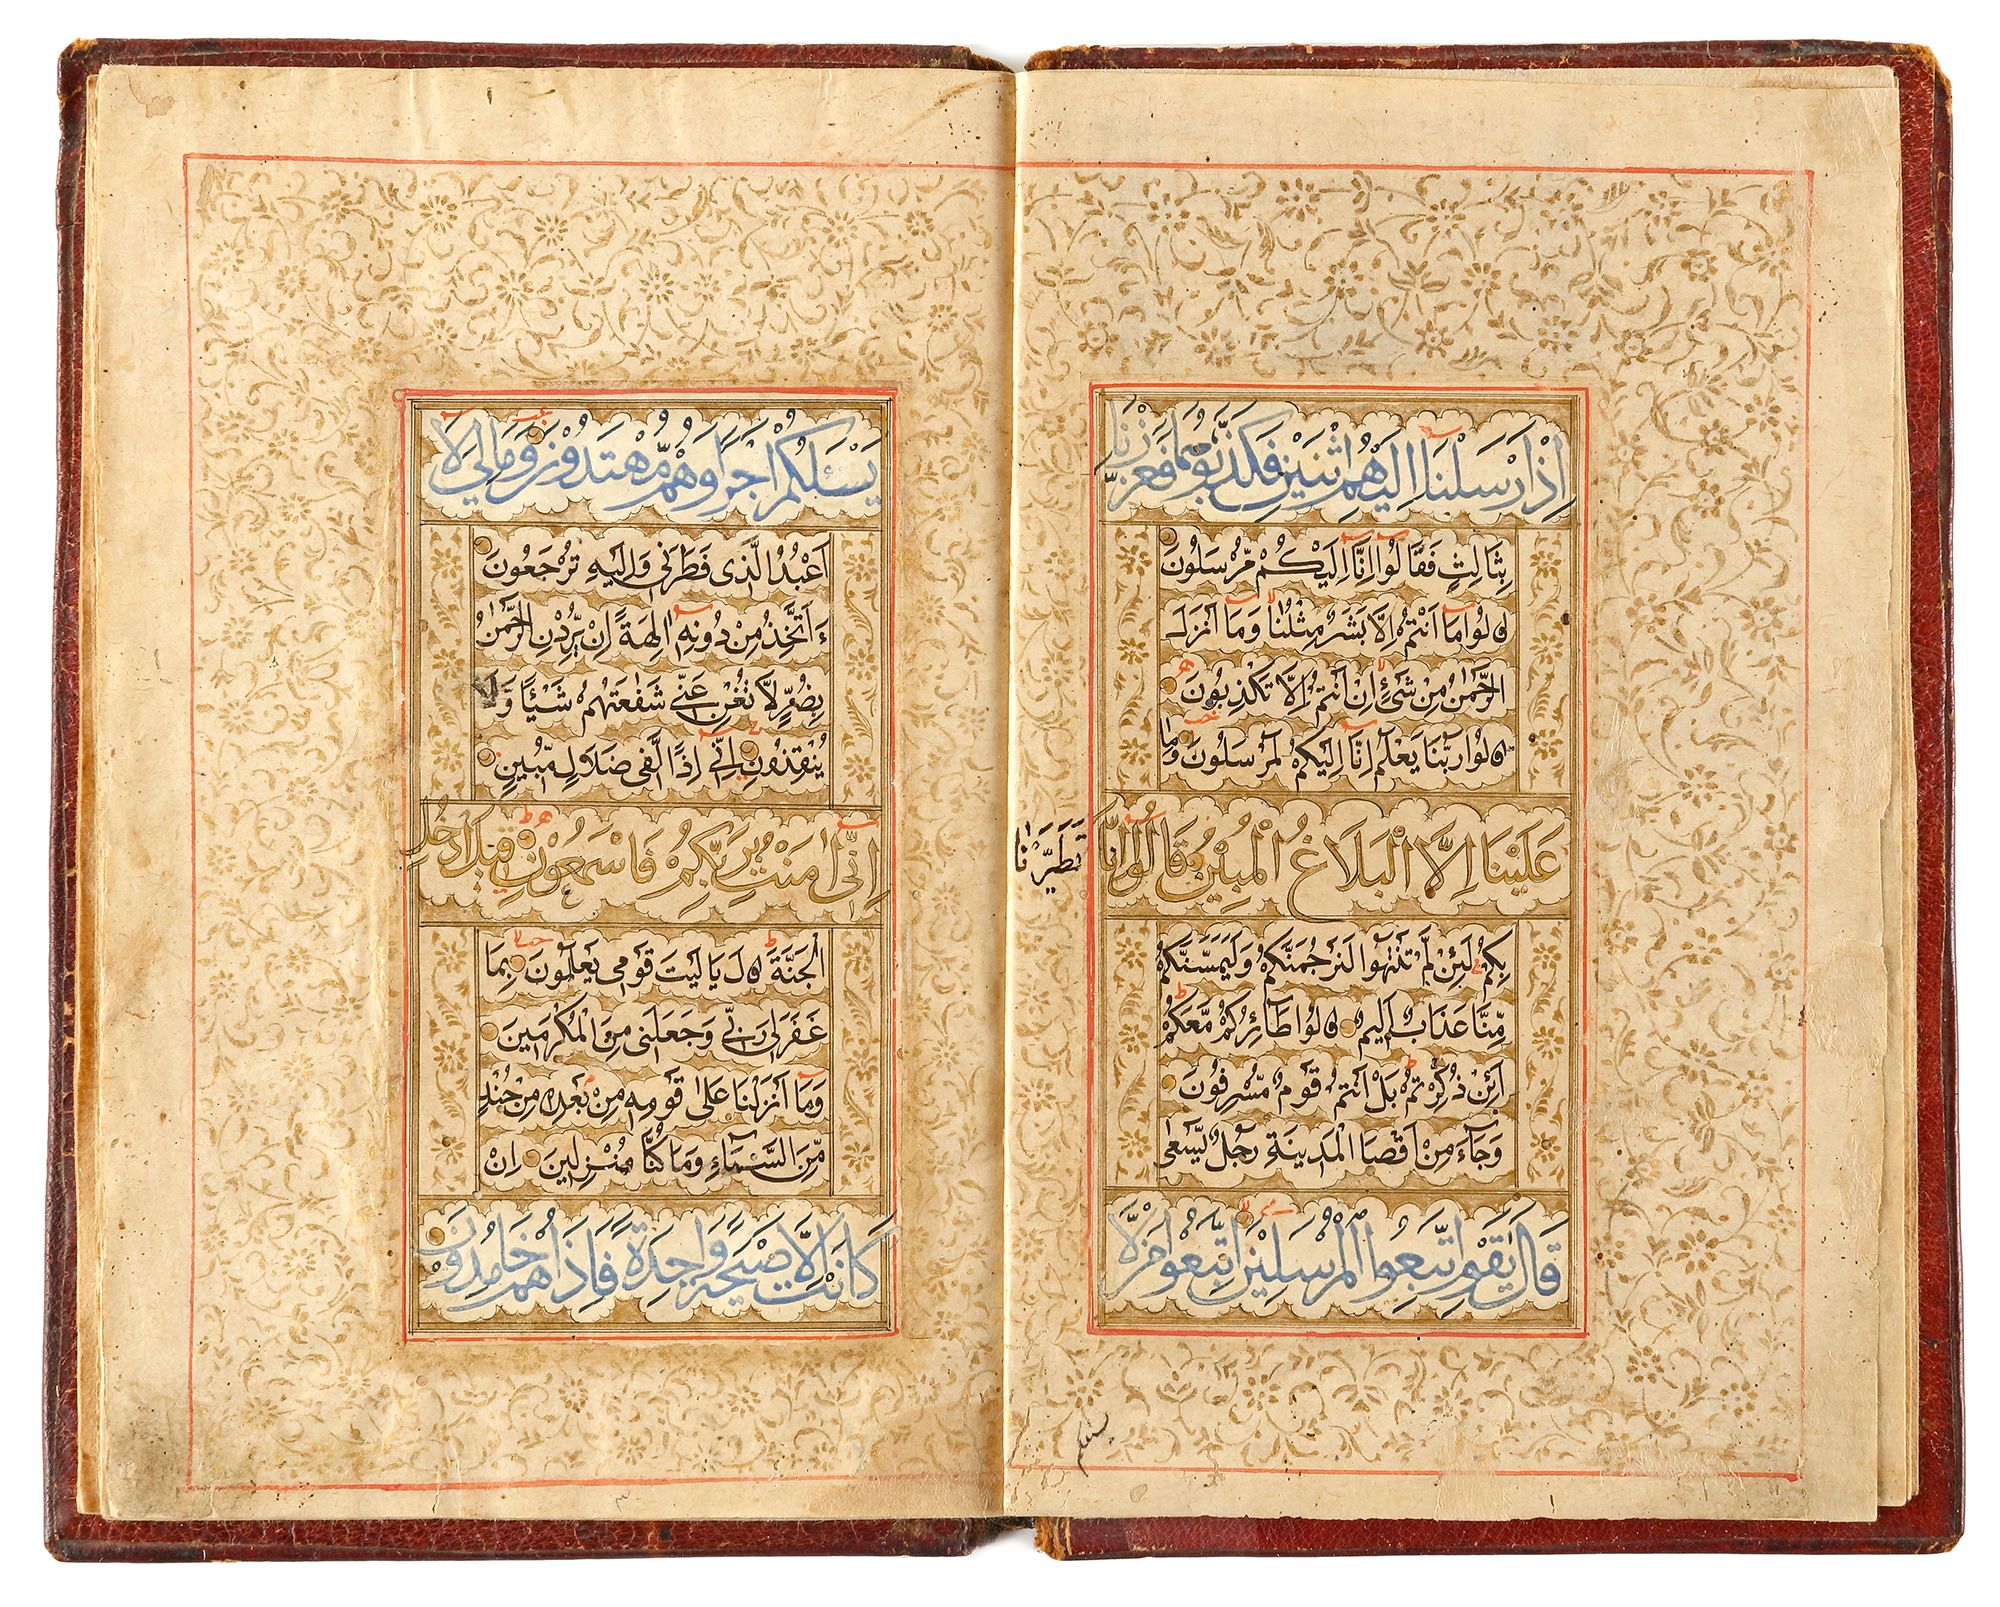 اِذْ اَرْسَلْنَا اِلَيْهِمُ اثْنَيْنِ فَكَذَّبُوهُمَا فَعَزَّزْنَا
بِثَالِثٍ فَقَالُوا اِنَّا اِلَيْكُمْ مُّرْسَلُونَ
قالُوا مَا اَنْتُمْ اِلَّا بَشَرٌ مِثْلُنَا وَمَا اَنْزَلَ
الرَّحْمٰنُ مِنْ شَیْءٍ اِنْ اَنْتُمْ اِلَّا تَكْذِبُونَ
قالُوا رَبُّنَا يَعْلَمُ اِنَّا اِلَيْكُمْ لَمُرْسَلُونَ وَمَا
عَلَيْنَا اِلَّا الْبَلَاغُ الْمُبِيْنُ قَالُوا اِنَّا
تَطَيَّرْنَا
بِكُمْ لَئِنْ لَّمْ تَنْتَهُوا لَنَرْجُمَنَّكُمْ وَلَيَمَسَّنَّكُمْ
مِّنَّا عَذَابٌ اَلِيمٌ قالُوا طَآئِرُكُمْ مَّعَكُمْ
اَئِنْ ذُكِّرْتُمْ بَلْ اَنْتُمْ قَوْمٌ مُّسْرِفُونَ
وَجَآءَ مِنْ اَقْصَا الْمَدِينَةِ رَجُلٌ يَّسْعٰى
قَالَ يٰقَوْمِ اتَّبِعُوا الْمُرْسَلِيْنَ اتَّبِعُوا مَنْ لَّا
يَسْئَلُكُمْ اَجْرًا وَهُمْ مُّهْتَدُوْنَ وَمَا لِیَ لَا
اَعْبُدُ الَّذِی فَطَرَنِی وَاِلَيْهِ تُرْجَعُونَ
ءَاَتَّخِذُ مِنْ دُونِهِ اٰلِهَةً اِنْ يُّرِدْنِ الرَّحْمٰنُ
بِضُرٍّ لَّا تُغْنِ عَنِّی شَفٰعَتُهُمْ شَيْئًا وَّلَا
يُنْقِذُونِ اِنِّی اِذًا لَّفِی ضَلَالٍ مُّبِينٍ
اِنِّی اٰمَنْتُ بِرَبِّكُمْ فَاسْمَعُوْنِ قِيْلَ ادْخُلِ
الْجَنَّةَ قالَ يَا لَيْتَ قَوْمِی يَعْلَمُونَ بِمَا
غَفَرَ لِی رَبِّی وَجَعَلَنِی مِنَ الْمُكْرَمِينَ
وَمَا اَنْزَلْنَا عَلٰى قَوْمِهِ مِنْ بَعْدِهِ مِنْ جُنْدٍ
مِّنَ السَّمَآءِ وَمَا كُنَّا مُنْزِلِينَ اِنْ
كَانَتْ اِلَّا صَيْحَةً وَّاحِدَةً فَاِذَا هُمْ خَامِدُوْنَ